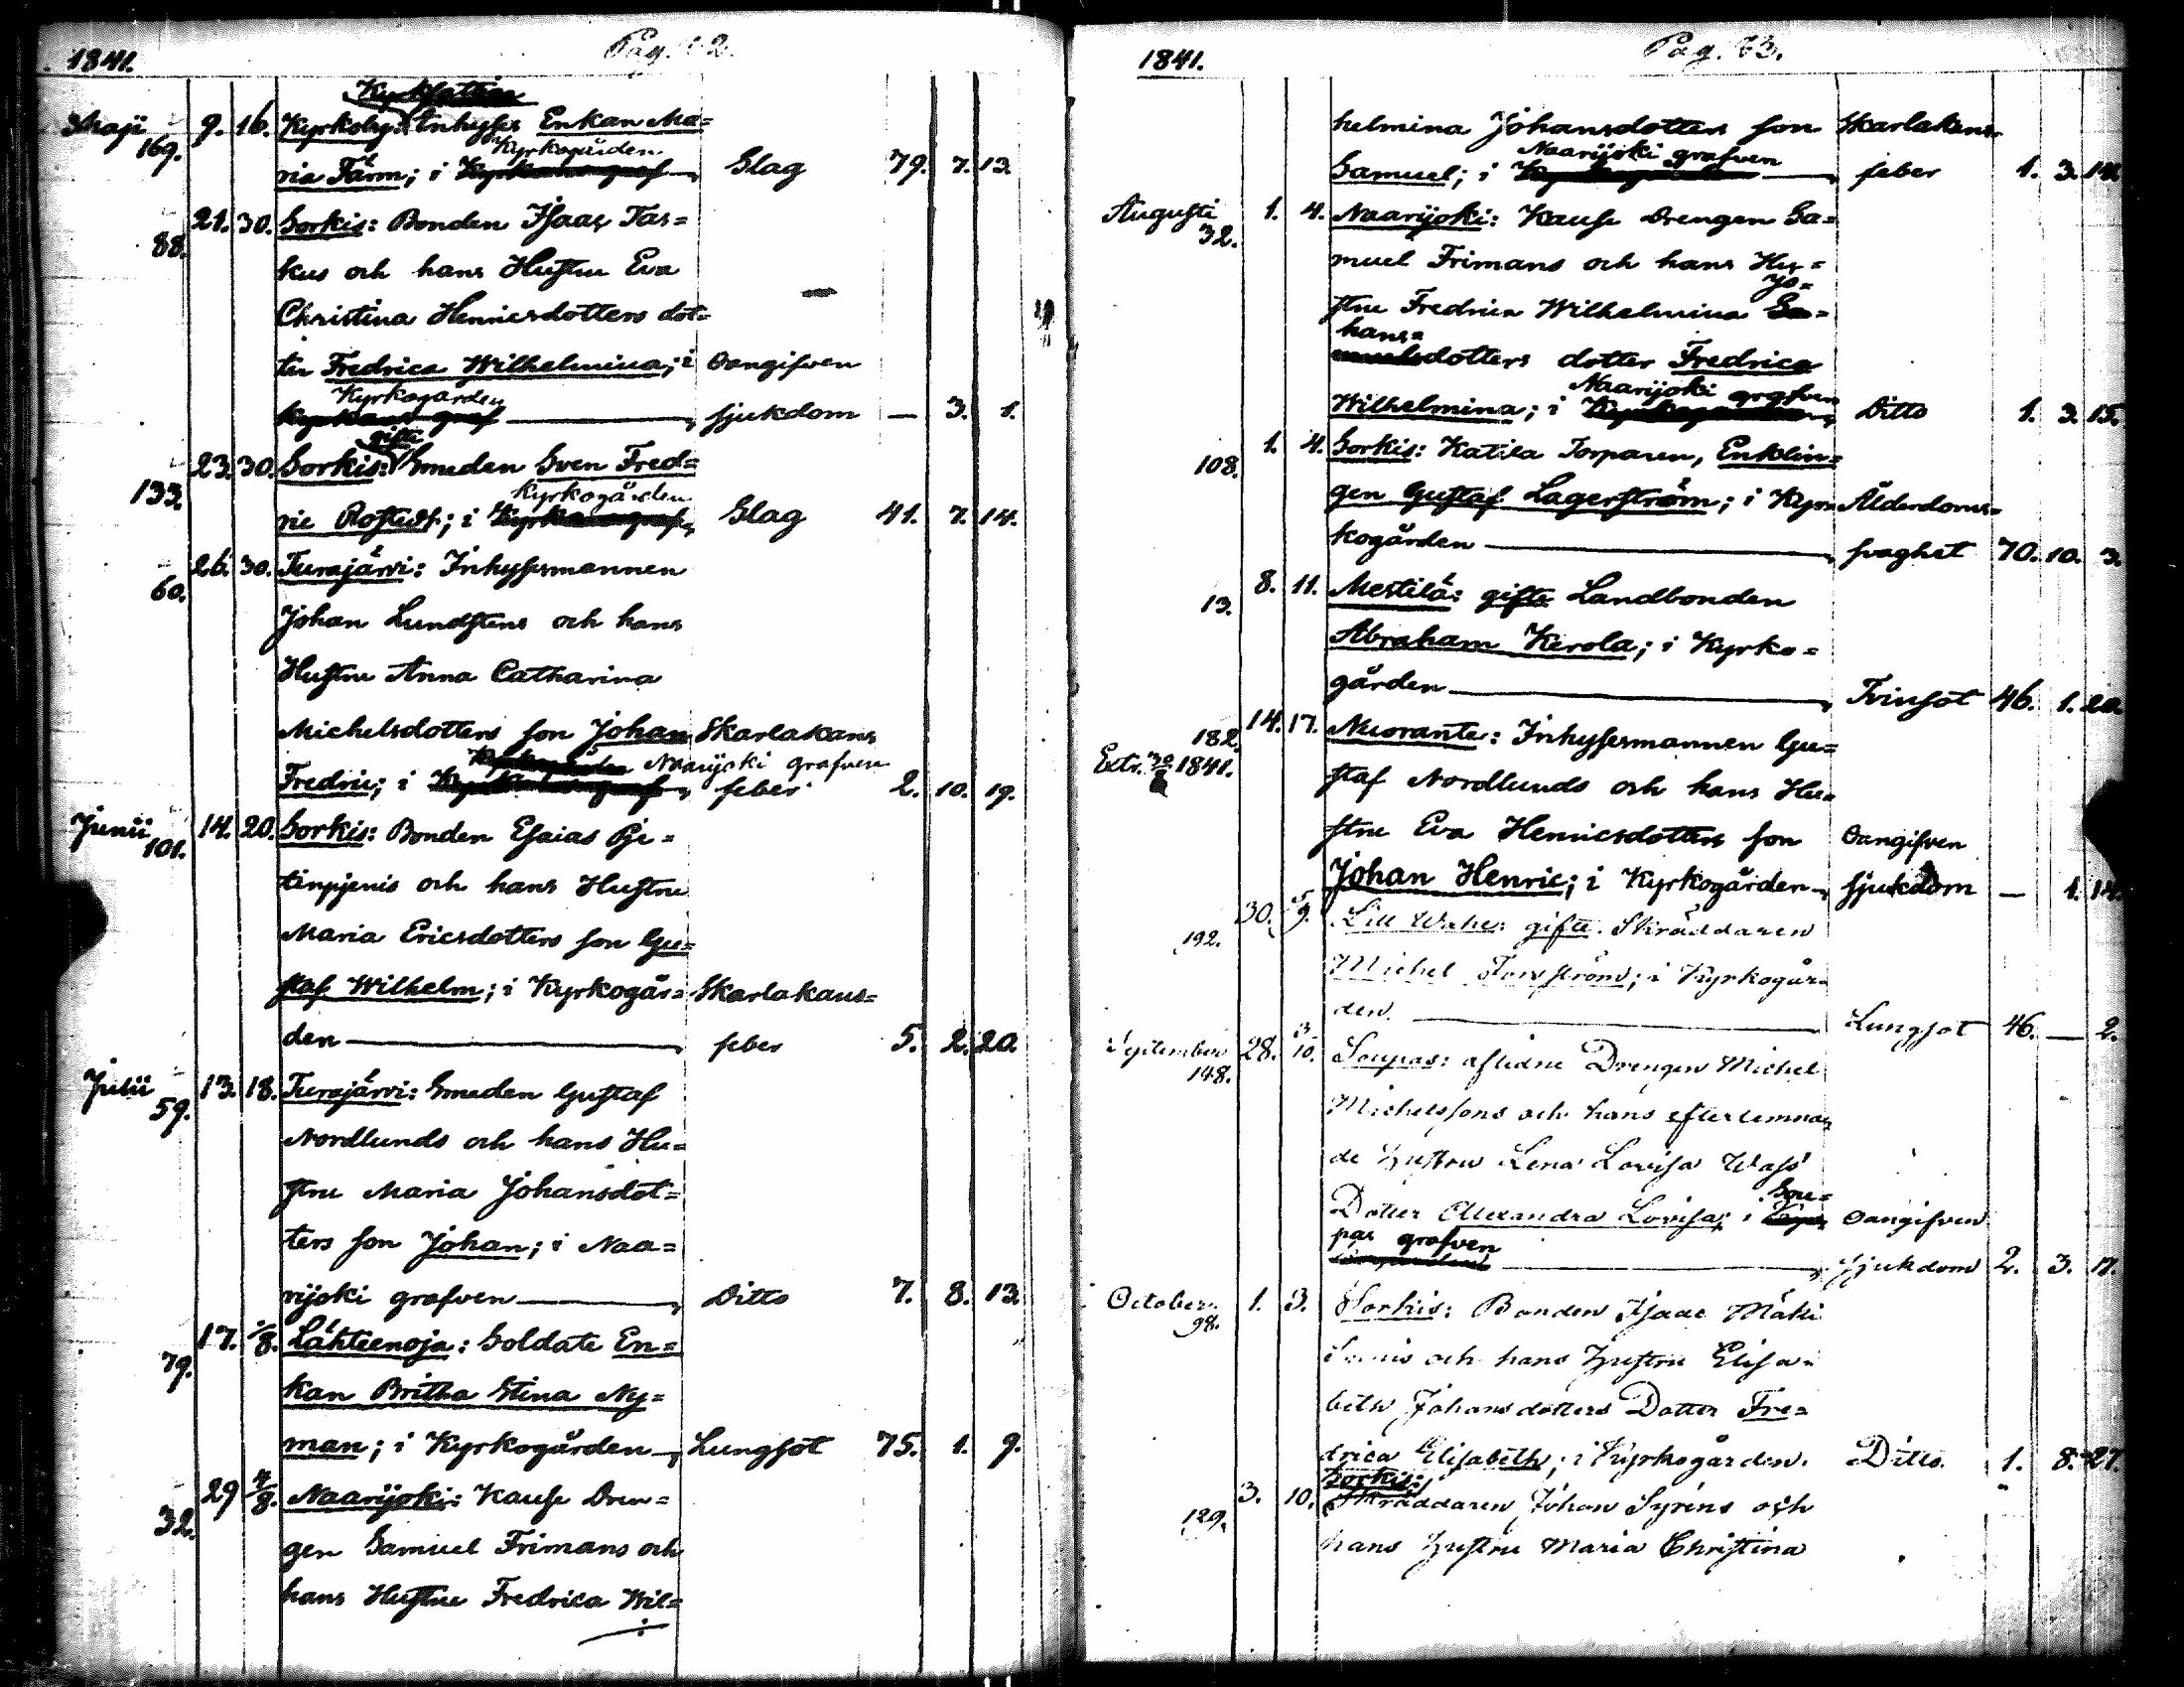 1841. Pag. 2.
Maji 9. 16. Kyrkoby: Inhyses Enkan Ma=
169. Kyrkogården
ria Tärm; i Slag 79. 7. 13.
21. 30. Sorkis: Bonden Isaac Tas=
88.
kus och hans Hustru Eva
Christina Henricsdotters dot=
ter Fredrica Wilhelmina; i Oangifven
Kyrkogården
Kyrkans graf sjukdom — 3. 1.
gifte
23. 30. Sorkis: Smeden Sven Fred=
133. Kyrkogården
ric Rostedt; i Kyrkans graf Slag 41. 7. 14.
26. 30. Turajärvi: Inhysesmannen
60.
Johan Lundstens och hans
Hustru Anna Catharina
Michelsdotters son Johan Skarlakans
Naarijoki grafven
Fredric; i feber 2. 10. 19.
Junii 14. 20. Sorkis: Bonden Esaias Pje=
101.
tinpjenis och hans Hustru
Maria Ericsdotters son Gu=
staf Wilhelm; i Kyrkogår= Skarlakans=
den feber 5. 2. 20.
Julii 13. 18. Turajärvi: Smeden Gustaf
59.
Nordlunds och hans Hu=
stru Maria Johansdot=
ters son Johan; i Naa=
rijoki grafven Ditto 7. 8. 13.
17. 1/8. Lähteenoja: Soldate En=
79.
kan Britha Stina Ny=
man; i Kyrkogården Lungsot 75. 1. 9.
29 4/8. Naarijoki: Kause Dren=
32.
gen Samuel Frimans och
hans Hustru Fredrica Wil=
1841. Pag. 63.
helmina Johansdotters son Skarlakans
Naarijoki grafven
Samuel; i feber 1. 3. 14.
Augusti 1. 4. Naarijoki: Kause Drengen Sa=
32.
muel Frimans och hans Hu=
Jo=
stru Fredrica Wilhelmina Sa=
hans=
dotters dotter Fredrica
Naarijoki grafven
Wilhelmina; i Ditto 1. 3. 15.
1. 4. Sorkis: Katila Torparen, Enklin=
108.
gen Gustaf Lagerström; i Kyr= Ålderdoms=
kogården svaghet 70. 10. 3.
8. 11. Mestilä: gifte Landbonden
13.
Abraham Kerola; i Kyrko=
gården Tvinsot 46. 1. 20.
14. 17. Nuorante: Inhysesmannen Gu=
182.
Extr. 1841.
staf Nordlunds och hans Hu=
stru Eva Henricsdotters son Oangifven
Johan Henric; i Kyrkogården sjukdom — 1. 14.
30. 5/9. Lill gifte Skräddaren
192.
Michel Forsström; i Kyrkogår=
den. Lungsot 46. — 2.
September 28. 3/10. Soupas: aflidne Drengen Michel
148.
Michelssons och hans efterlemnan
de Hustru Lena Lovisa Wass
Sou=
Dotter Alexandra Lovisa; i Oangifven
pas grafven
Sjukdom 2. 3. 17.
October 1. 3. Sorkis: Bonden Isaac Mäki
98.
och hans Hustru Elisa=
beth Johansdotters Dotter Fre=
drica Elisabeth; i Kyrkogården. Ditto 1. 8. 27.
Sorkis:
3. 10. Skräddaren Johan Syrens och
129.
hans Hustru Maria Christina